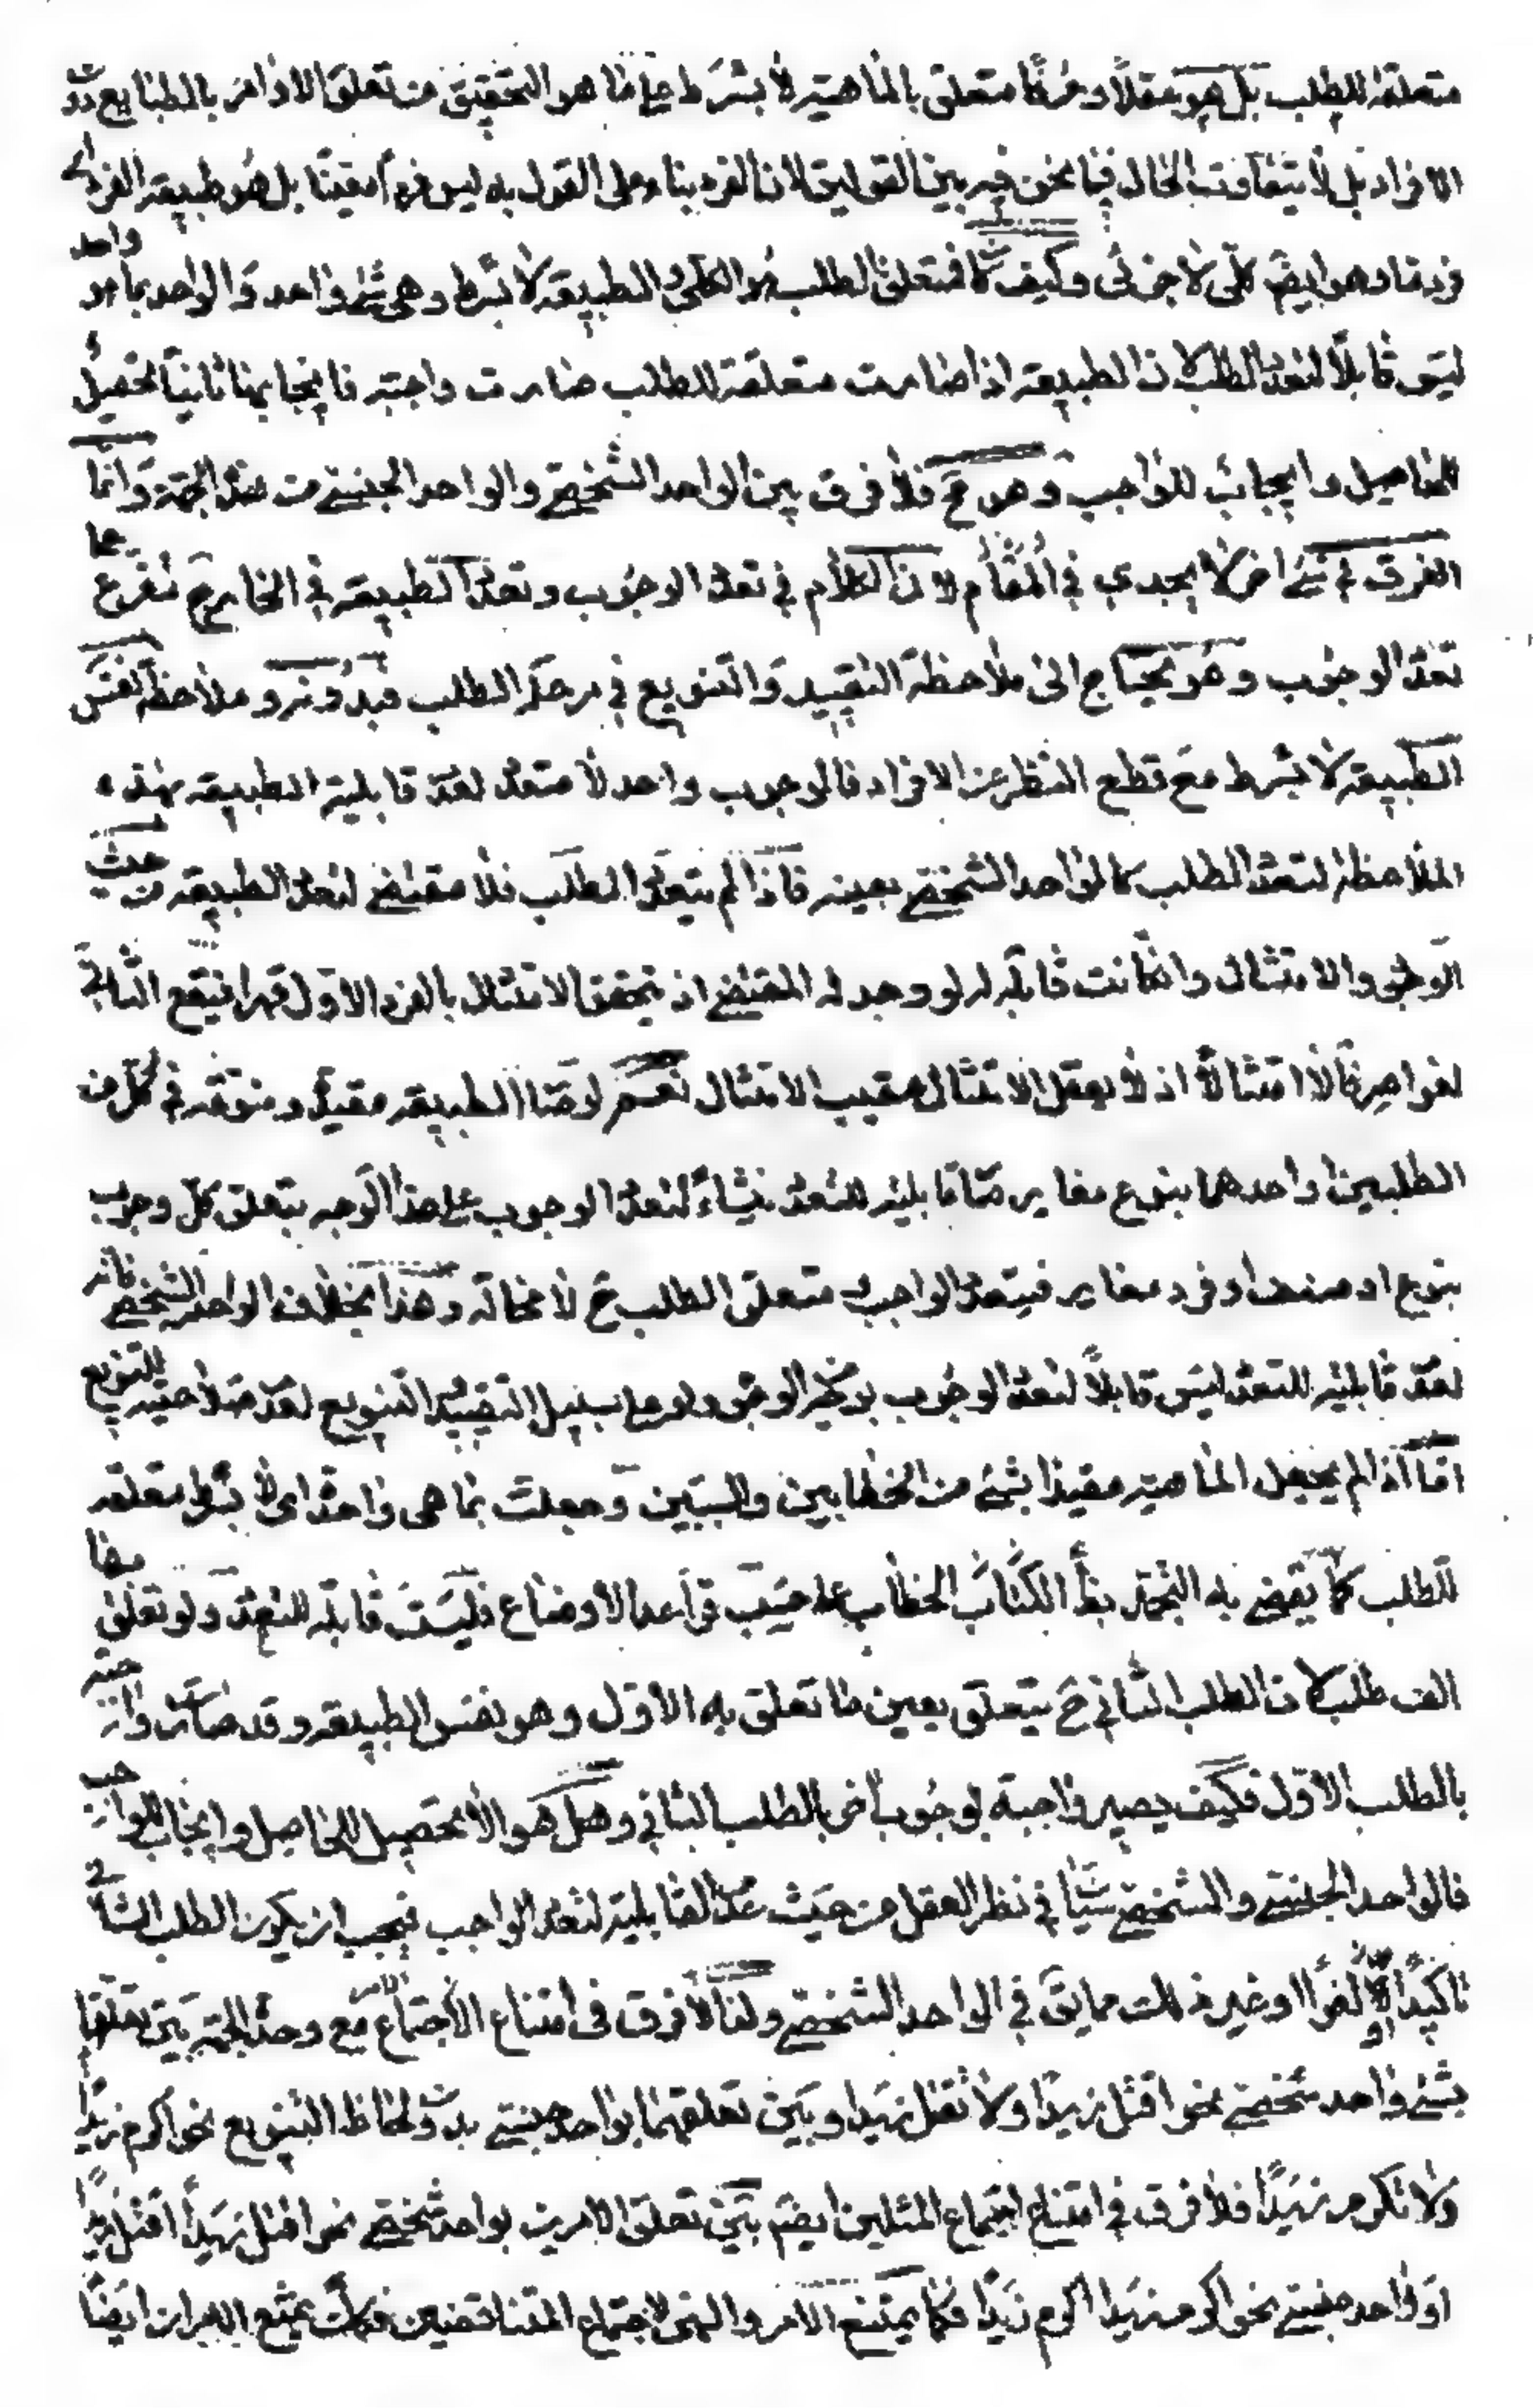 متعلقة للطلب بل هو عقلا وعرفا متعلق بالماهية لا بشرط على ما هو التحقيق من تعلق الاوامر بالطبايع دون
الافراد بل لا يتفاوت الحال فيما نحن فيه بين القولين لان الفرد بناء على القول به ليس فردا معينا بل هو طبيعة الفرد اى
فرد ما وهو ايضا كلى لا جزئى وكيف كان فمتعلق الطلب هو الكلى والطبيعة لا بشرط وهى شئ واحد والواحد بما هو واحد
ليس قابلا لتعدد الطلب لان الطبيعة اذا صارت متعلقة للطلب صارت واجبة فايجابها ثانيا تحصيل
للحاصل وايجاب للواجب وهو مح فلا فرق بين الواحد الشخصى والواحد الجنسى من هذه الجهة وانما
الفرق فى شئ اخر لا يجدى فى المقام لان الكلام فى تعدد الوجوب وتعدد الطبيعة فى الخارج متفرع على
تعدد الوجوب وهو يحتاج الى ملاحظة التقييد والتنويع فى مرحلة الطلب فبدونه وملاحظة نفس
الطبيعة لا بشرط مع قطع النظر عن الافراد فالوجوب واحد لا متعدد لعدم قابلية الطبيعة بهذه
الملاحظة لتعدد الطلب كالواحد الشخصى بعينه فاذا لم يتعدد الطلب فلا مقتضى لتعدد الطبيعة من حيث
الوجود والامتثال وان كانت قابلة له لو وجد له المقتضى اذ يتحقق الامتثال بالفرد الاول قهرا فيقع الثانى
لغوا صرفا لا امتثالا اذ لا يعقل الامتثال عقيب الامتثال نعم لو صار الطبيعة مقيدة ومنوعة فى كل من
الطلبين او احدهما بنوع مغاير فقابلية للتعدد لتعدد الوجوب على هذا الوجه بتعلق كل وجوب
بنوع او صنف او فرد مغاير فيتعدد الواجب و متعلق الطلب ح لا محالة وهذا بخلاف الواحد الشخصى فانه
لعدم قابليته للتعدد ليس قابلا لتعدد الوجوب بوجه من الوجوه ولو على سبيل التقييد والتنويع لعدم صلاحيته للتنويع
اما اذا لم يجعل الماهية مقيدا بشئ من الخطابين والسببين وجعلت بما هى واحدة اى لا بشرط متعلقة
للطلب كما يقضى به التجمد بظاهر الكتاب الخطاب على حسب قواعد الاوضاع فليست قابلة للتعدد ولو تعلق بها
الف طلب لان الطلب الثانى ح يتعلق بعين ما تعلق به الاول وهو نفس الطبيعة وقد صارت واجبة
بالطلب الاول فكيف يصير واجبة بوجوب اخر بالطلب الثانى وهل هو الا تحصيل للحاصل وايجاب للواجب
فالواحد الجنسى والشخصى سيان فى نظر العقل من حيث عدم القابلية لتعدد الواجب فيجب ان يكون الطلب الثانى
تاكيدا او لغوا او غير ذلك مما يق فى الواحد الشخصى ولذا لا فرق فى امتناع الاجتماع مع وحدة الجهة بين تعلقهما
بشئ واحد شخصى نحو اقتل زيدا ولا تقتل زيدا وبين تعلقهما بواحد جنسى بدون لحاظ التنويع نحو اكرم زيدا
ولا تكرم زيدا فلا فرق فى امتناع اجتماع المثلين ايضا بين تعلق الامرين بواحد شخصى نحو اقتل زيدا اقتل زيدا
او واحد جنسى نحو اكرم زيدا اكرم زيدا فكما يمتنع الامر والنهى لاجتماع المتناقضين فكذلك يمتنع الامران ايضا